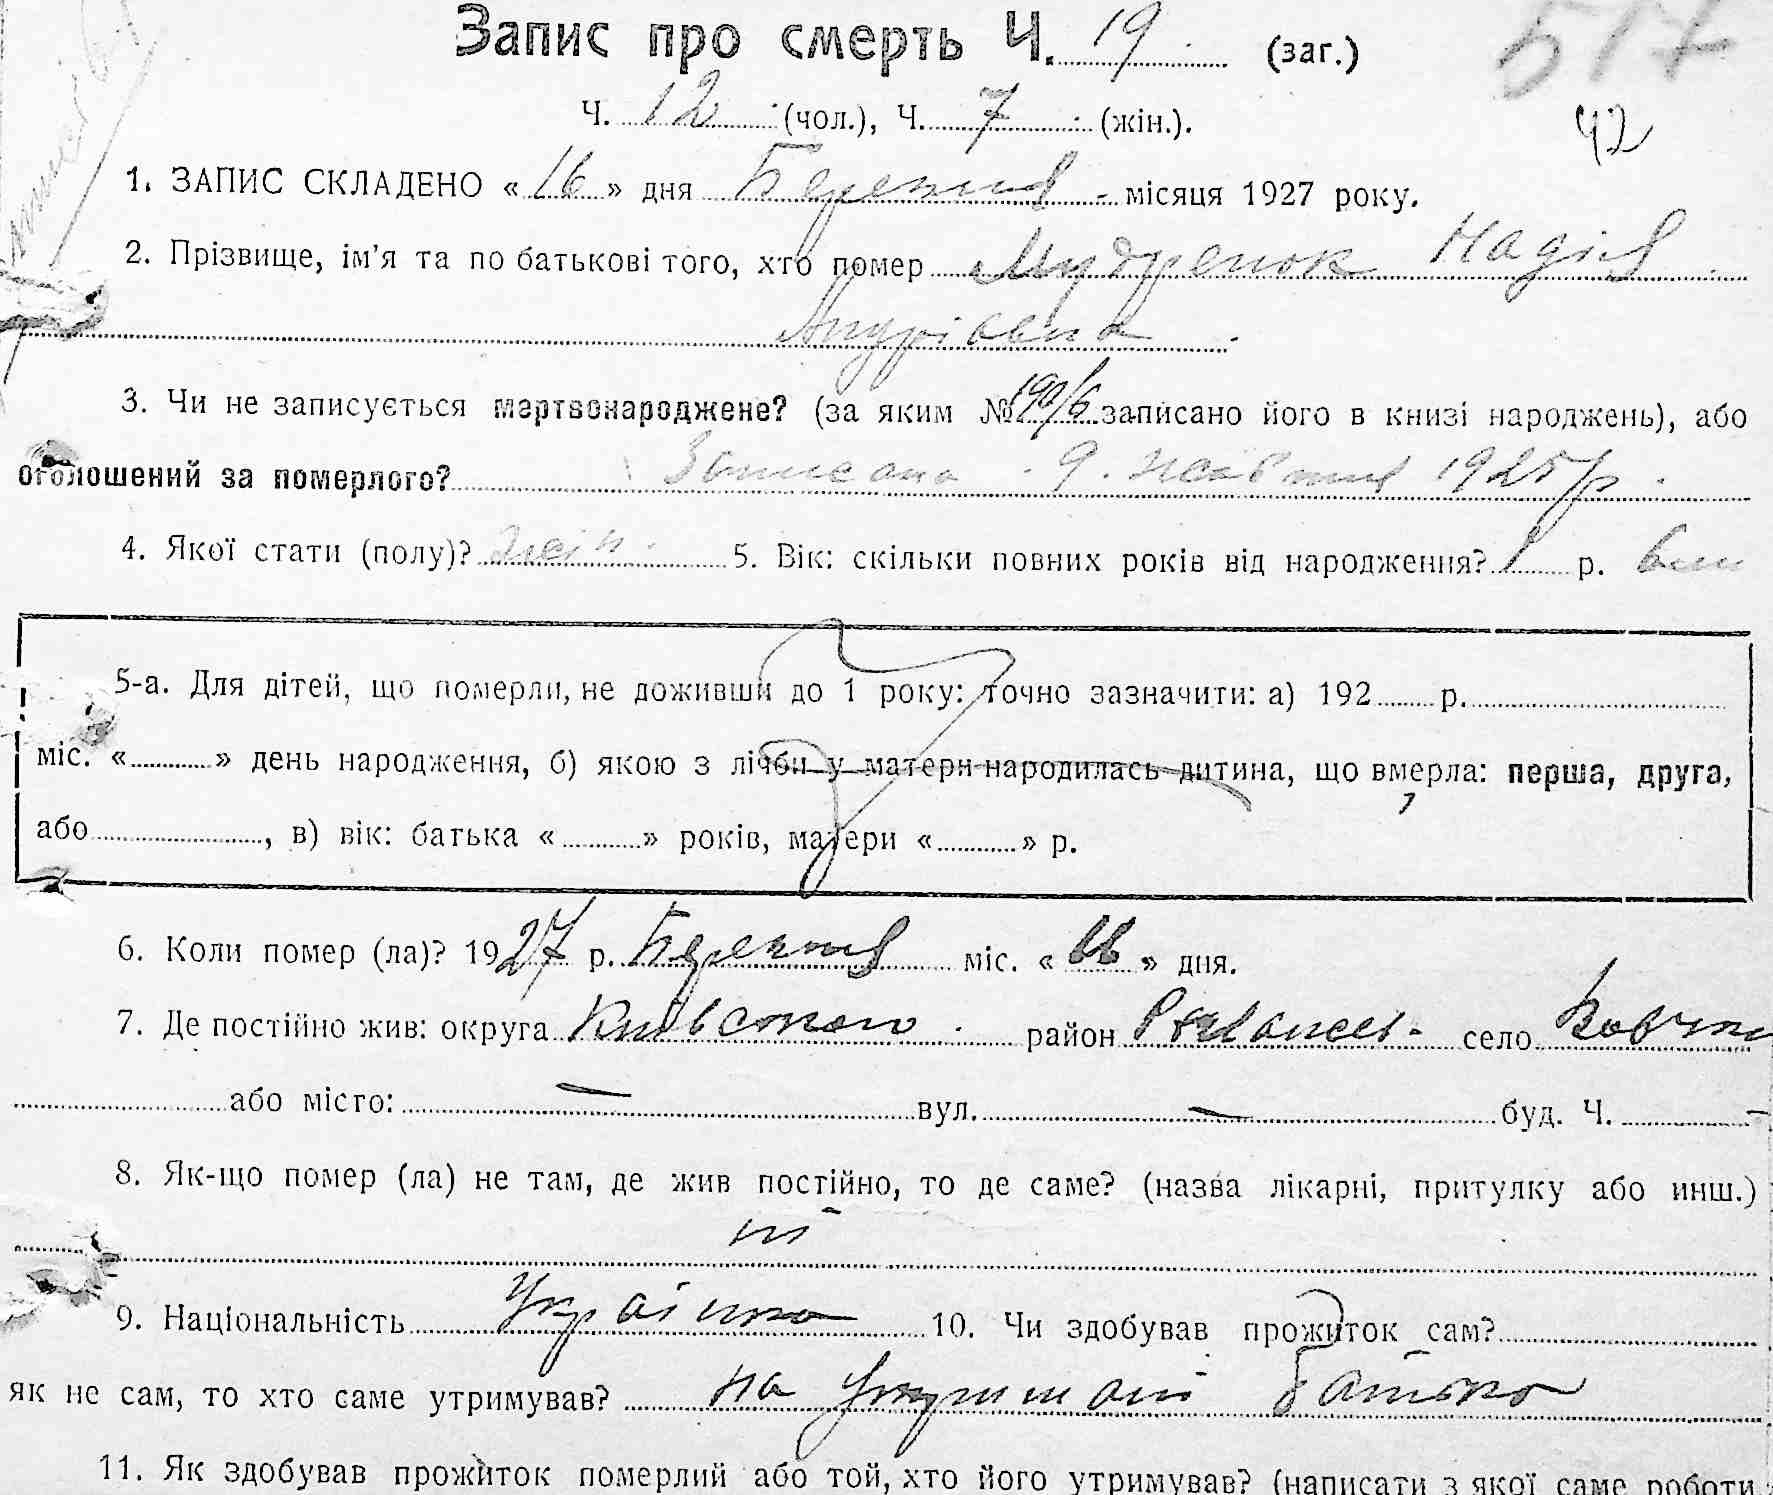 Запис про смерть Ч. 19 (заг.)
517
Ч. 12 (чол.), Ч. 7 (жін.).
42
1. ЗАПИС СКЛАДЕНО « 16 » дня Березня місяця 1927 року.
2. Прізвище, ім'я та по батькові того, хто помер Мудренок Надія
Андріївна
3. Чи не записується мертвонароджене? (за яким № 190/6 записано його в книзі народжень), або
оголошений за померлого? Записана 9. жовтня 1925 р.
4. Якої стати (полу)? жін. 5. Вік: скільки повних років від народження? 1 р.
5-а. Для дітей, що померли, не доживши до 1 року: точно зазначити: а) 192 р.
міс. « » день народження, б) якою з лічби у матери народилась дитина, що вмерла: перша, друга,
або , в) вік: батька « » років, матери « » р.
6. Коли помер (ла)? 1927 р. Березня міс. « 16 » дня.
7. Де постійно жив: округа район село
або місто: — вул. — буд. Ч. —
8. Як-що помер (ла) не там, де жив постійно, то де саме? (назва лікарні, притулку або инш.)
ні
9. Національність Українка 10. Чи здобував прожиток сам?
як не сам, то хто саме утримував? на утриманні батька
11. Як здобував прожиток померлий або той, хто його утримував? (написати з якої саме роботи